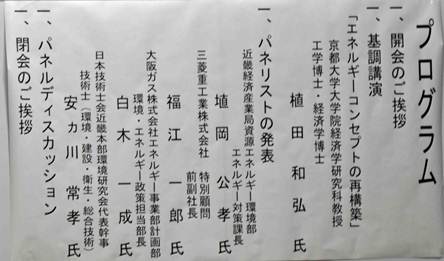 プログラム
一、開会のご挨拶
一、基調講演
「エネルギーコンセプトの再構築」
京都大学大学院経済学研究科教授
工学博士・経済学博士
植田和弘氏
一、パネリストの発表
近畿経済産業局資源エネルギー環境部
エネルギー対策課長
埴岡公孝氏
三菱重工業株式会社 特別顧問
前副社長
福江一郎氏
大阪ガス株式会社エネルギー事業部計画部
環境・エネルギー政策担当部長
白木一成氏
日本技術士会近畿本部環境研究会代表幹事
技術士（環境・建設・衛生・総合技術）
安ヵ川常孝氏
一、パネルディスカッション
一、閉会のご挨拶